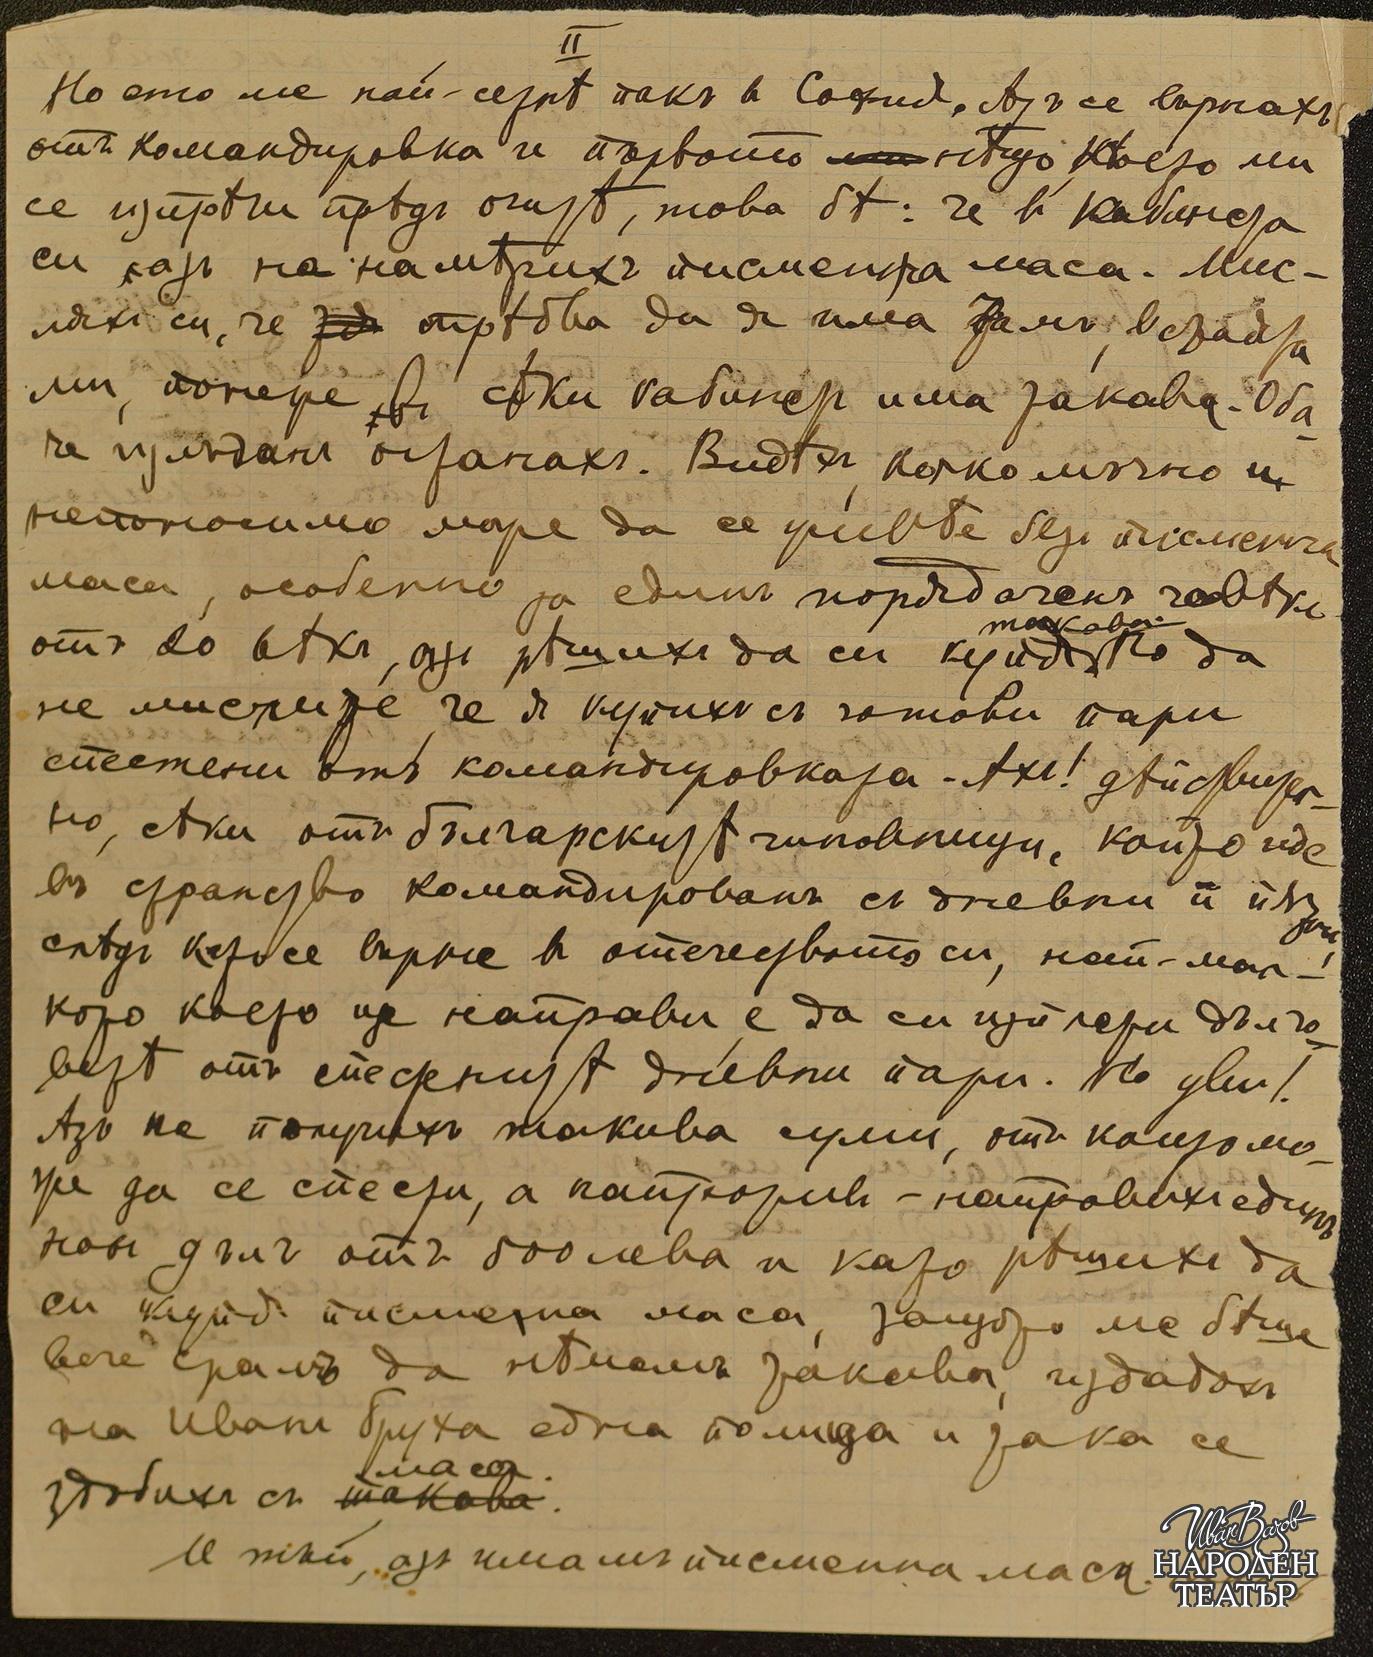 II
Но ето ме най-сетнѣ пакъ в София. Азъ се върнахъ
отъ командировка и първото нѣщо, което ми
се изпрѣчи прѣдъ очитѣ, това бѣ: че в кабинета
си азъ не намѣрихъ писменна маса. Мис-
ляхъ си, че трѣбва да я има тамъ, в стаята
ми, понеже въ сѣки кабинет има такава. Оба-
че излъганъ останахъ. Видѣхъ, колко мъчно и
непоносимо може да се живѣе безъ писменна
маса, особенно за единъ порядоченъ човѣкъ
отъ 20 вѣкъ, азъ рѣшихъ да си купя такова. Но да
не мислите, че я купихъ съ готови пари
спестени отъ командировката - Ахъ! дѣйствител-
но, сѣки отъ българскитѣ чиновници, който иде
въ странство командированъ съ дневни и пѫтни,
слѣдъ като се върне в отечеството си, най-мал-
кото което ще направи, е да си изплати дълго-
ветѣ отъ спестенитѣ дневни пари. Но уви!
Азъ не получихъ такива суми, отъ които мо-
же да се спести, а напротивъ - направихъ единъ
новъ дългъ отъ 600 лева и като рѣшихъ да
си купя писменна маса, защото ме бѣше
вече срамъ да нѣмамъ такава, издадохъ
на Иванъ Бруха една полица и така се
здобихъ съ маса.
И тъй, азъ имамъ писменна маса.
Иван Вазов
НАРОДЕН
ТЕАТЪР